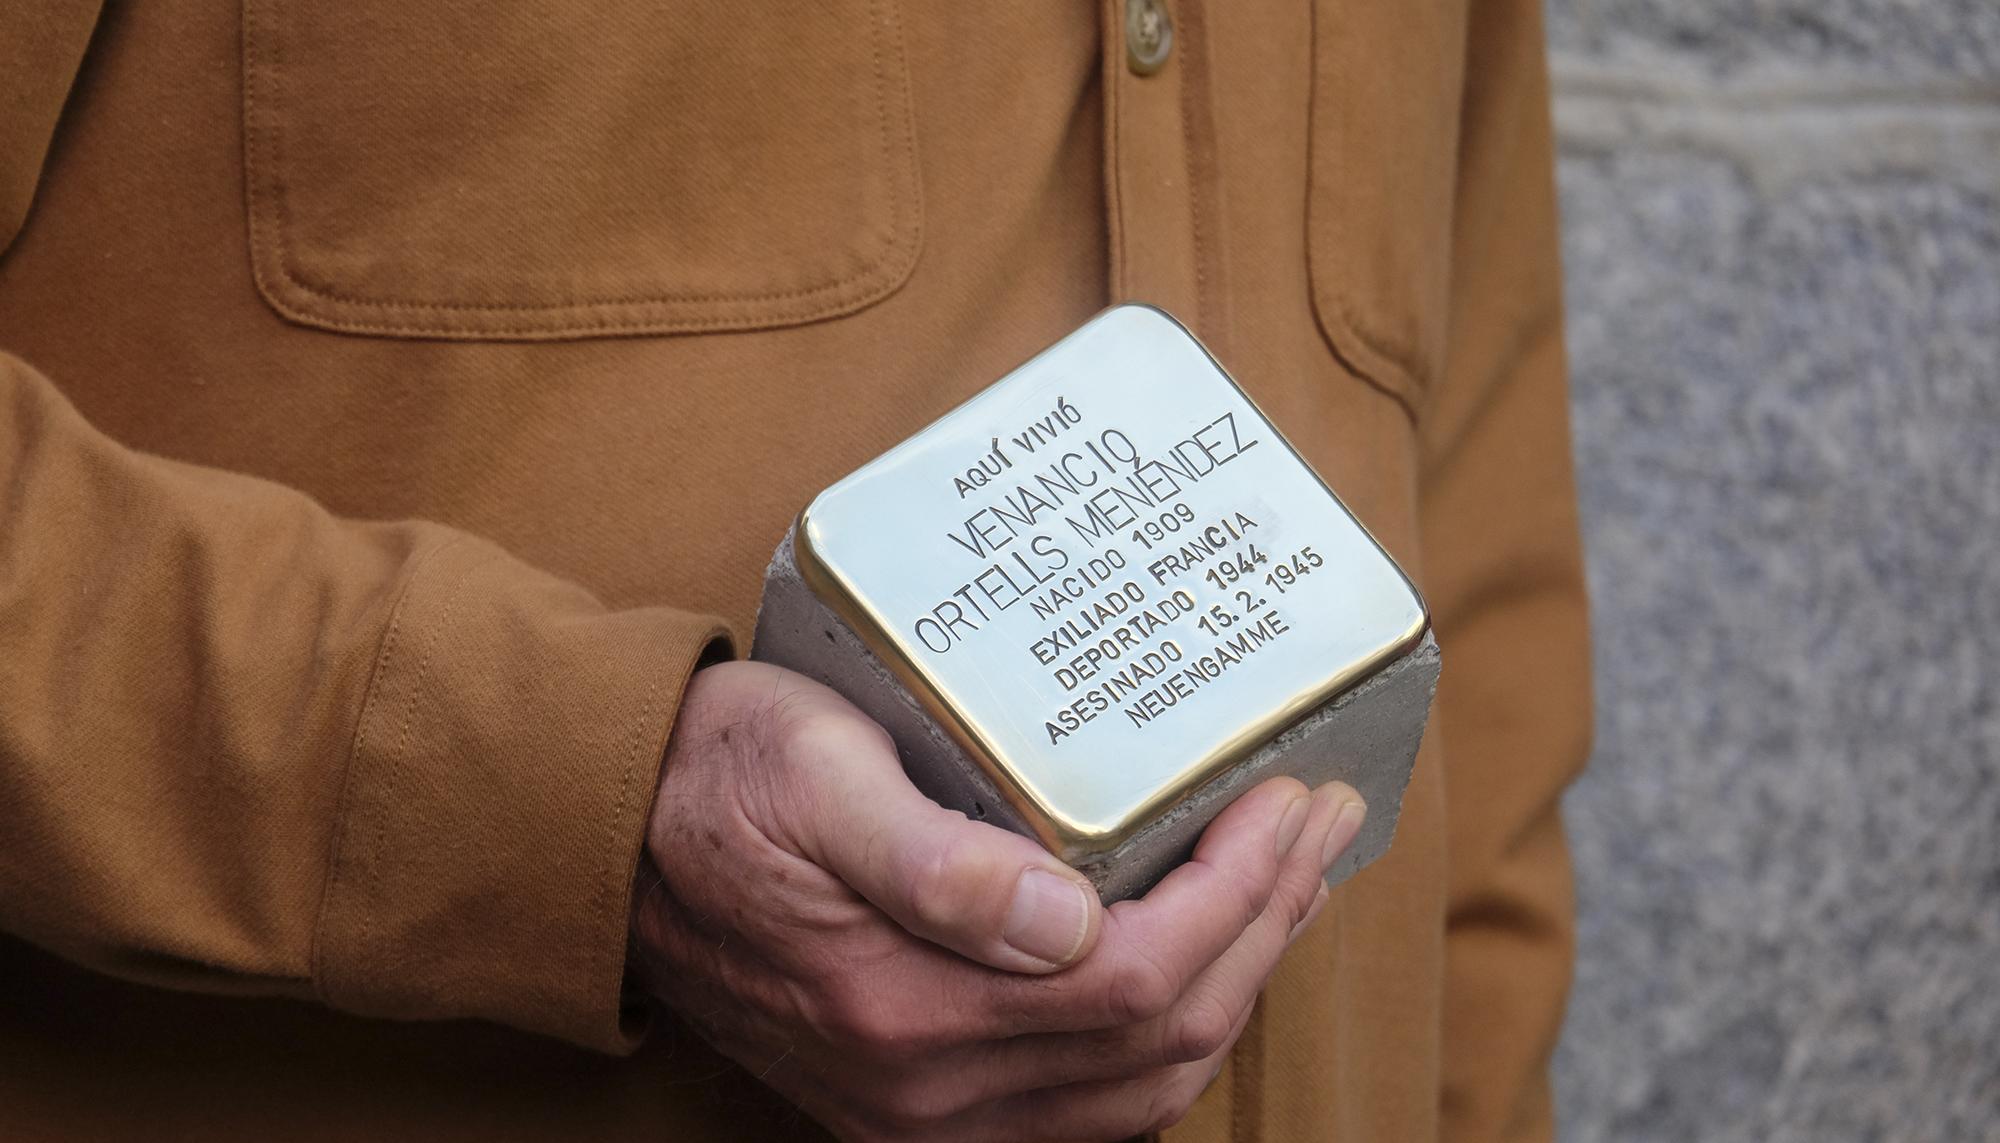 AQUÍ VIVIÓ
VENANCIO
ORTELLS MENÉNDEZ
NACIDO 1909
EXILIADO FRANCIA
DEPORTADO 1944
ASESINADO 15.2.1945
NEUENGAMME